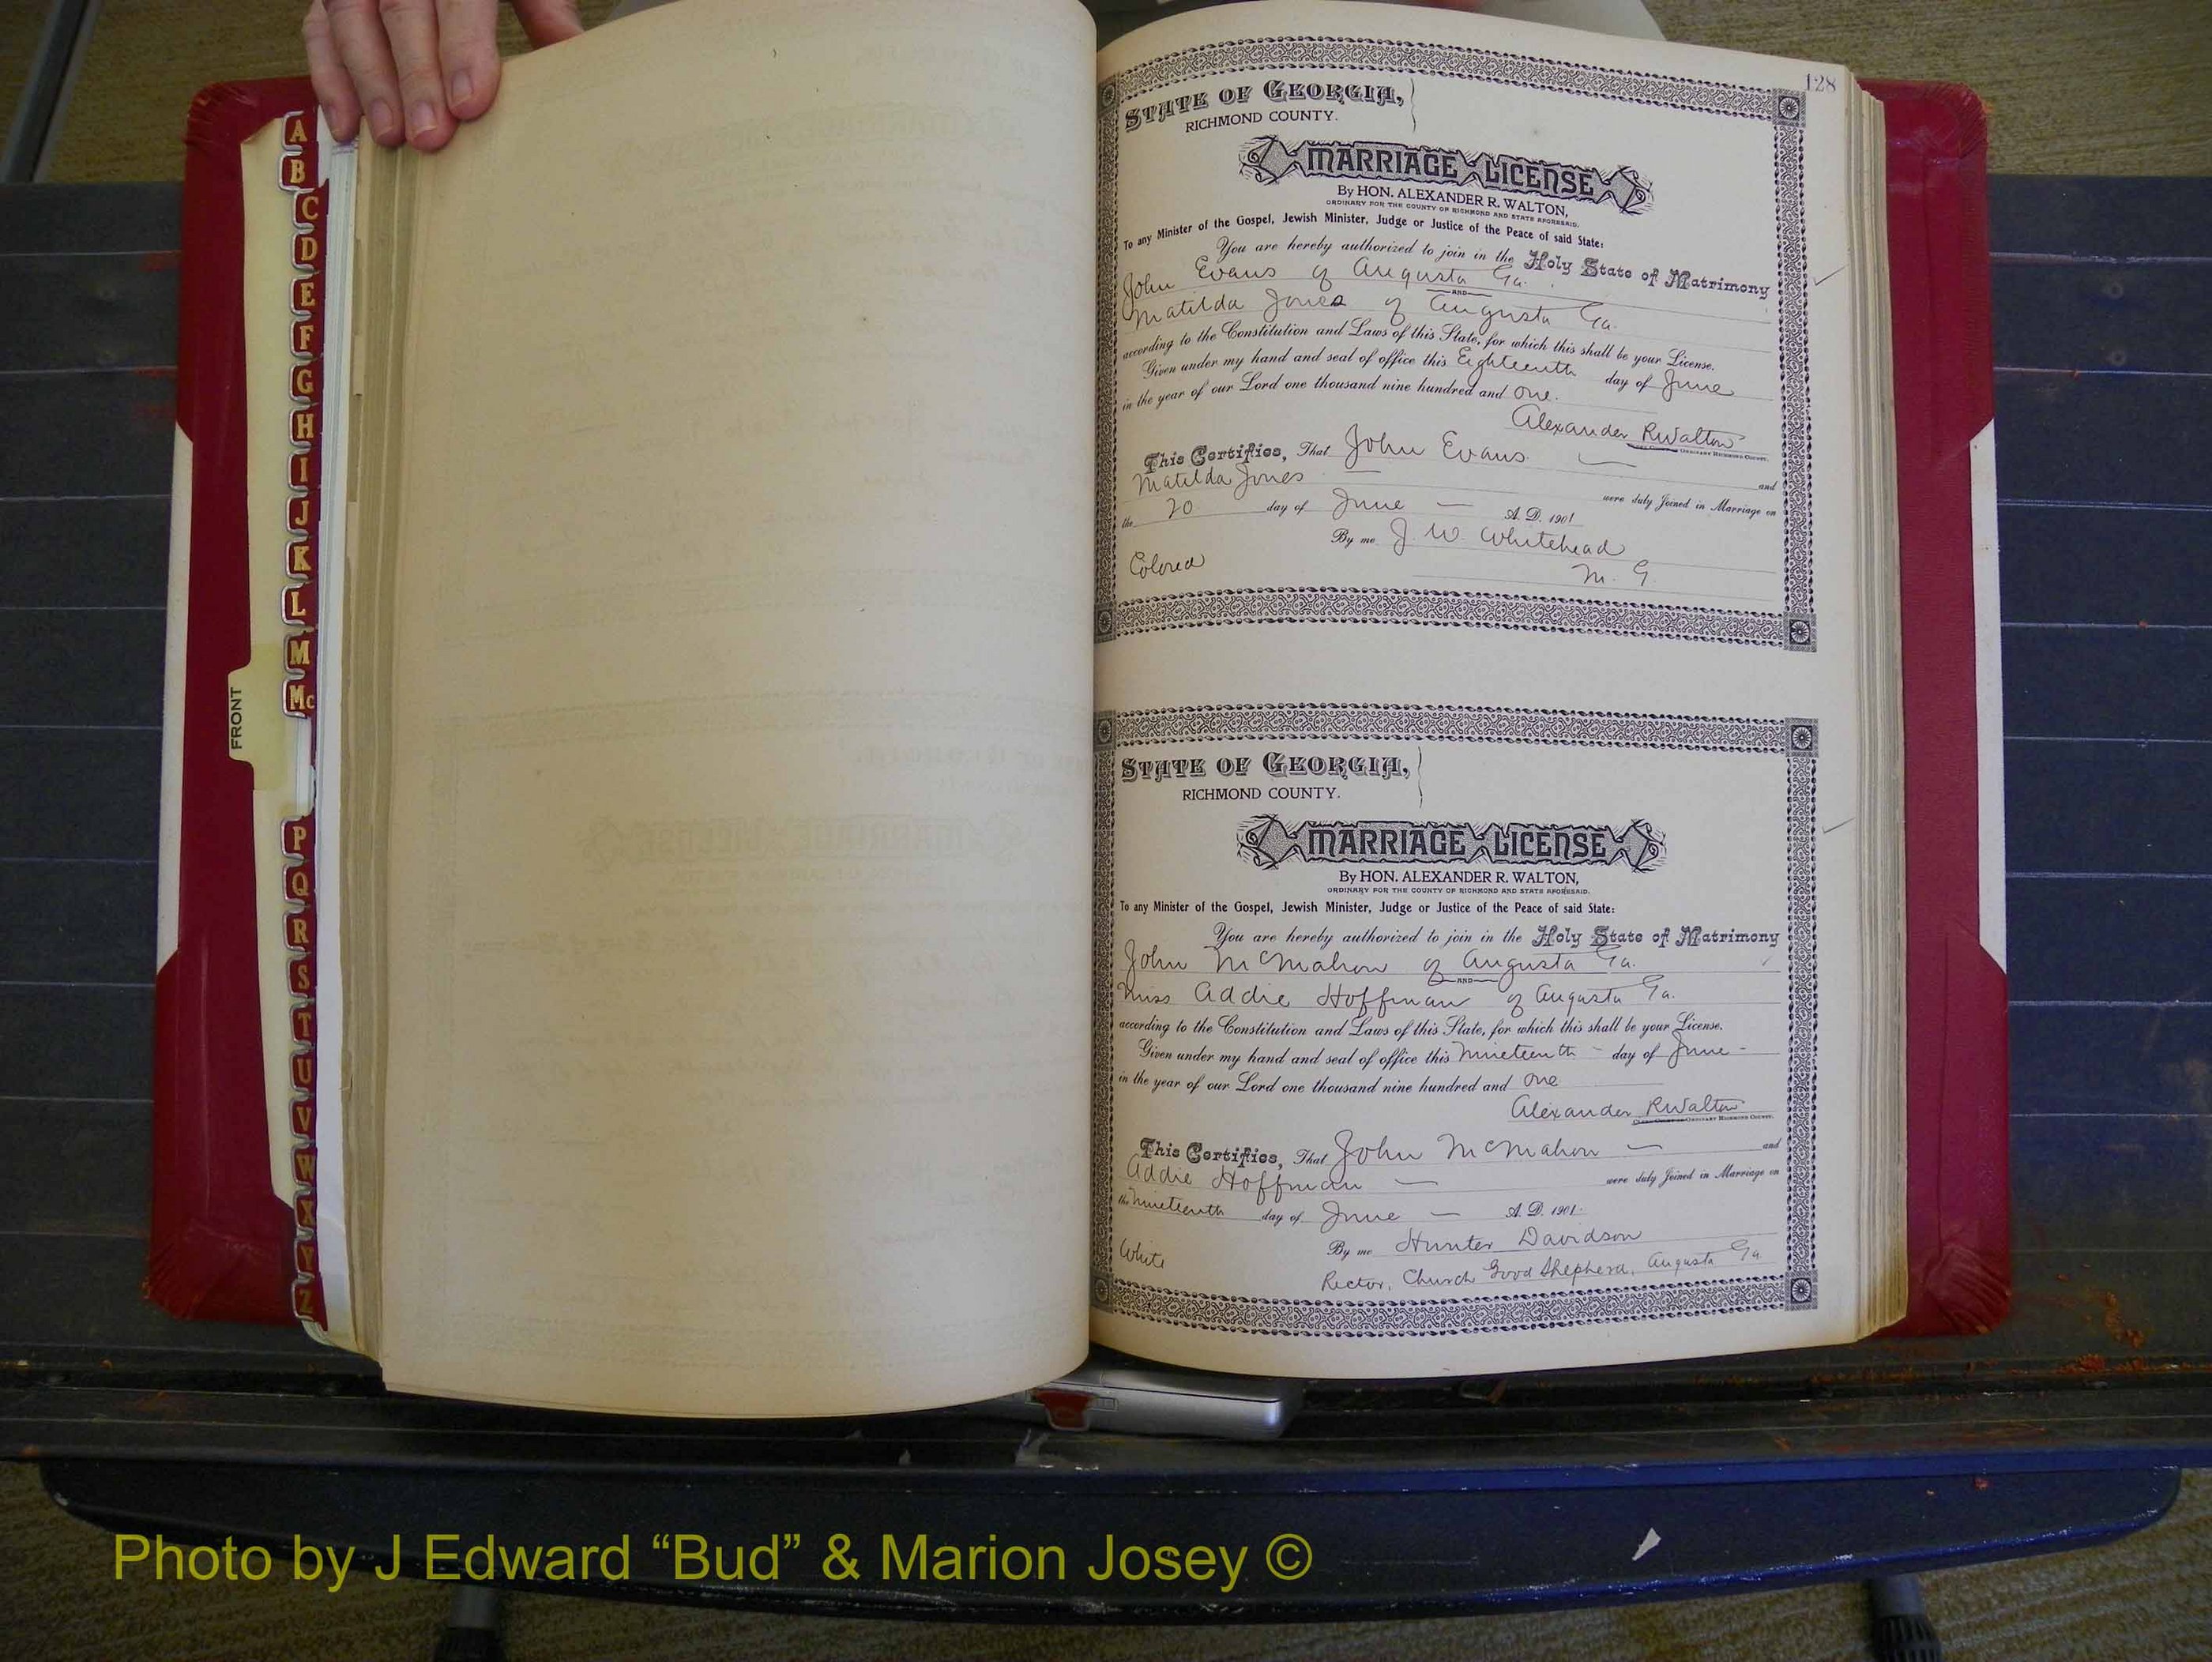 A
B
C
D
E
F
G
H
I
J
K
L
M
Mc
P
Q
R
S
T
U
V
W
X
Y
Z
FRONT
128
STATE OF GEORGIA,
RICHMOND COUNTY.
MARRIAGE LICENSE
By HON. ALEXANDER R. WALTON,
ORDINARY FOR THE COUNTY OF RICHMOND AND STATE AFORESAID.
To any Minister of the Gospel, Jewish Minister, Judge or Justice of the Peace of said State:
You are hereby authorized to join in the Holy State of Matrimony
John Evans of Augusta Ga.
AND
Matilda Jones of Augusta Ga.
according to the Constitution and Laws of this State, for which this shall be your License.
Given under my hand and seal of office this Eighteenth day of June
in the year of our Lord one thousand nine hundred and one.
Alexander R Walton
ORDINARY RICHMOND COUNTY.
This Certifies, That John Evans and
Matilda Jones were duly Joined in Marriage on
the 20 day of June A. D. 1901
By me J. W. Whitehead
Colored M. G.
STATE OF GEORGIA,
RICHMOND COUNTY.
MARRIAGE LICENSE
By HON. ALEXANDER R. WALTON,
ORDINARY FOR THE COUNTY OF RICHMOND AND STATE AFORESAID.
To any Minister of the Gospel, Jewish Minister, Judge or Justice of the Peace of said State:
You are hereby authorized to join in the Holy State of Matrimony
John McMahon of Augusta Ga.
AND
Miss Addie Hoffman of Augusta Ga.
according to the Constitution and Laws of this State, for which this shall be your License.
Given under my hand and seal of office this Nineteenth - day of June -
in the year of our Lord one thousand nine hundred and one
Alexander R Walton
ORDINARY RICHMOND COUNTY.
This Certifies, That John McMahon — and
Addie Hoffman — were duly Joined in Marriage on
the Nineteenth day of June — A. D. 1901.
By me Hunter Davidson
White Rector, Church Good Shepherd, Augusta Ga
Photo by J Edward “Bud” & Marion Josey ©